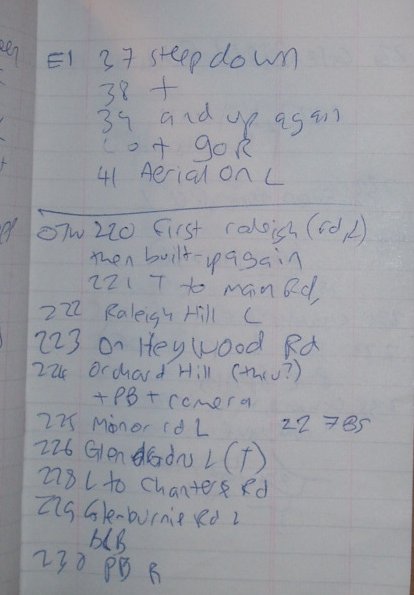 E1 37 step down
38 +
39 and up again
40 + go R
41 Aerial on L
OTW 220 First raleigh (rd, L)
then built-up again
221 T to main Rd,
222 Raleigh Hill L
223 on Heywood Rd
224 Orchard Hill (thru?)
+ PB + camera
225 Manor rd L 22 7BS
226 L (T)
228 L to Chanters Rd
229 Glenburnie Rd L
230 PB R